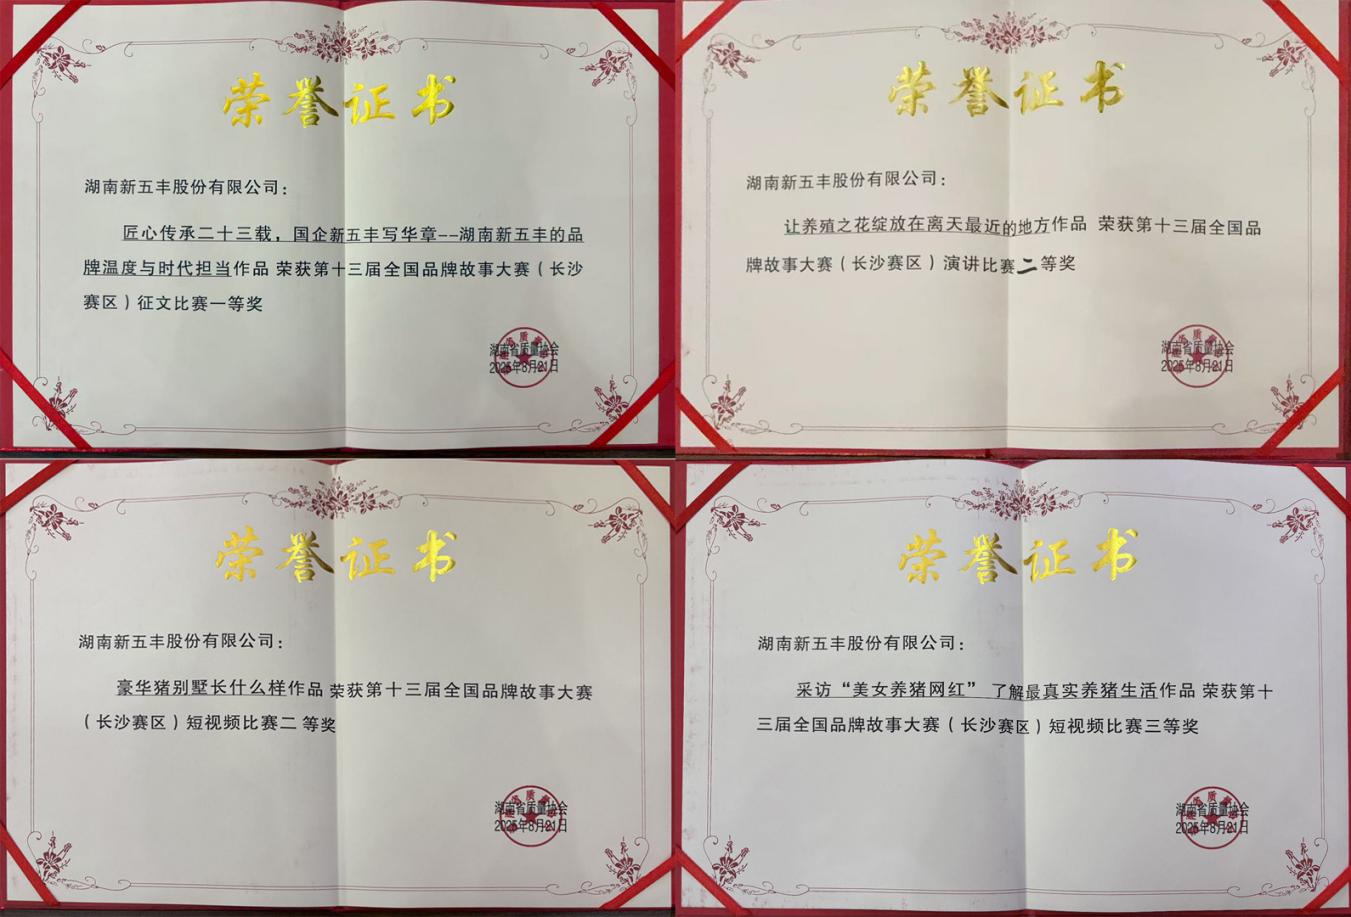 荣誉证书
湖南新五丰股份有限公司：
匠心传承二十三载，国企新五丰写华章--湖南新五丰的品
牌温度与时代担当作品 荣获第十三届全国品牌故事大赛（长沙
赛区）征文比赛一等奖
湖南省质量协会
2025年8月21日
荣誉证书
湖南新五丰股份有限公司：
让养殖之花绽放在离天最近的地方作品 荣获第十三届全国品
牌故事大赛（长沙赛区）演讲比赛二等奖
湖南省质量协会
2025年8月21日
荣誉证书
湖南新五丰股份有限公司：
豪华猪别墅长什么样作品 荣获第十三届全国品牌故事大赛
（长沙赛区）短视频比赛二 等奖
湖南省质量协会
2025年8月21日
荣誉证书
湖南新五丰股份有限公司：
采访“美女养猪网红” 了解最真实养猪生活作品 荣获第十
三届全国品牌故事大赛（长沙赛区）短视频比赛三等奖
湖南省质量协会
2025年8月21日